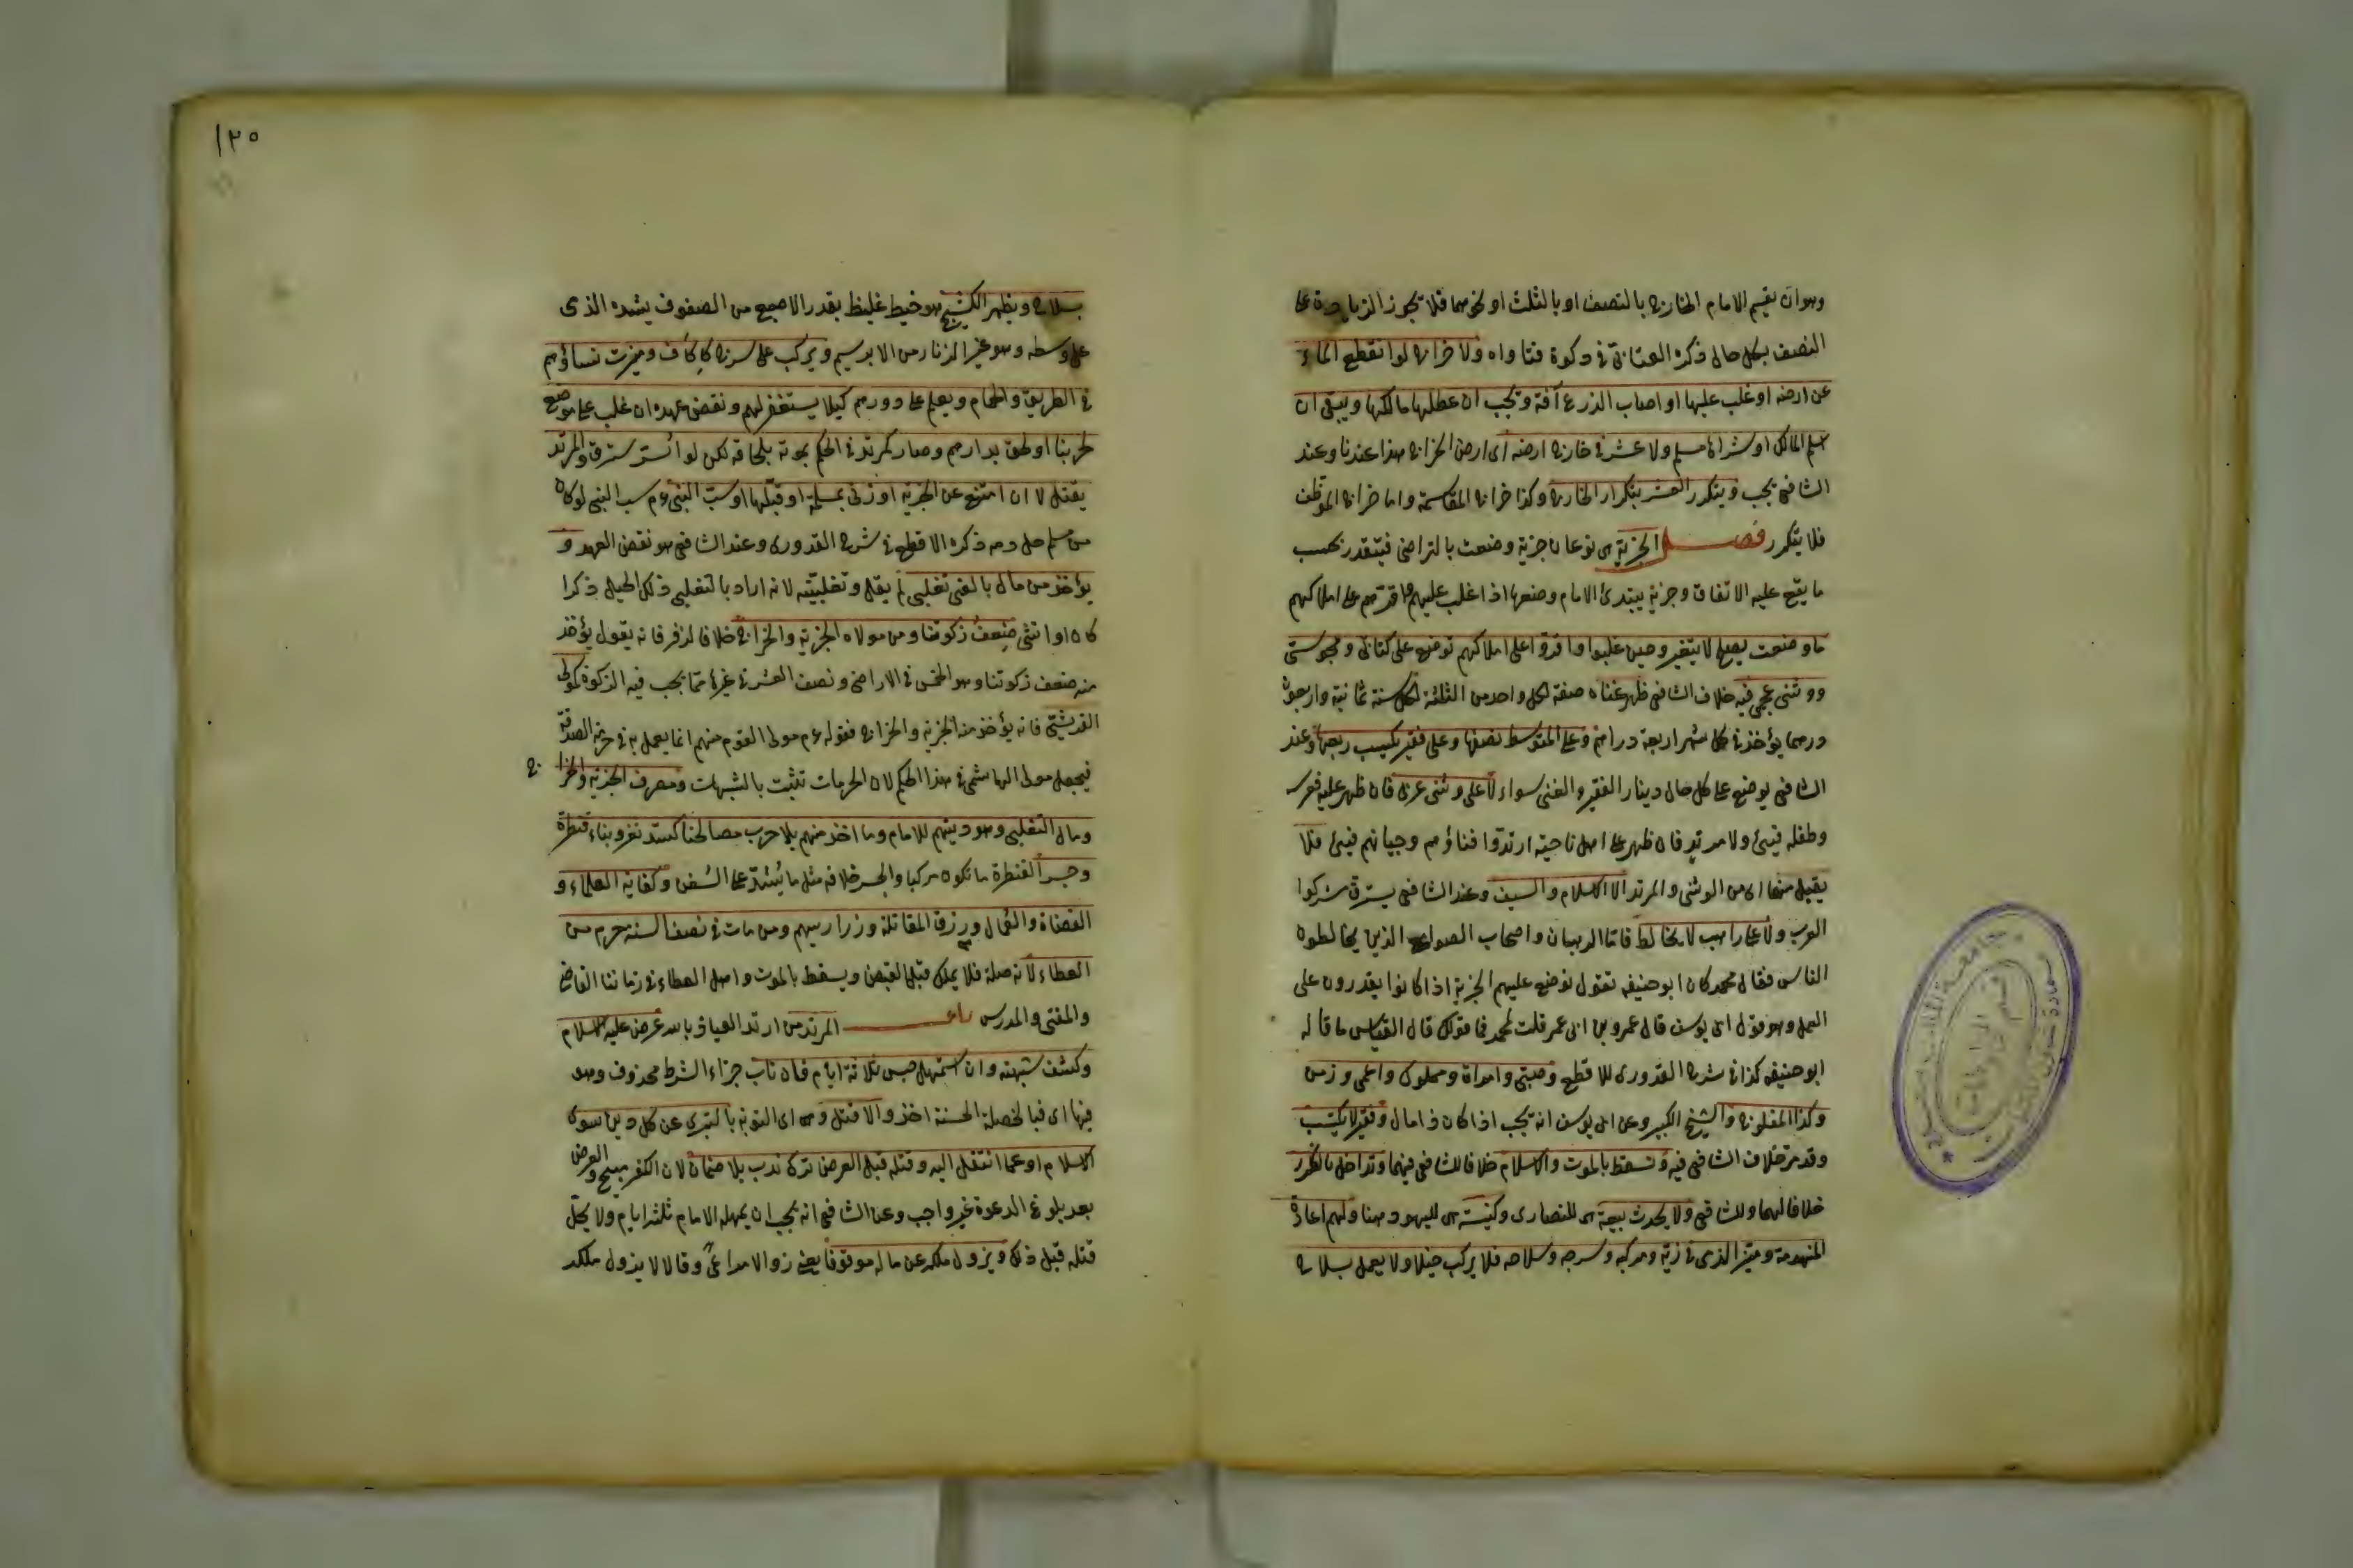 وهو ان يقيم الامام الخارج بالنصف او بالثلث او نحوهما فلا تجوز الزيادة على
النصف بكل حال ذكره العتابى في ذكوة فتاواه ولا خراج لو انقطع الماء
عن ارضه او غلب عليها او اصاب الزرع آفة وتجب ان عطلها مالكها ويبقى ان
اسلم المالك او شراها مسلم ولا عشر في خارج ارضه اى ارض الخراج هذا عندنا وعند
الشافعى يجب ويتكرر العشر بتكرار الخارج وكذا خراج المقاسمة واما خراج الموظف
فلا يتكرر فصل الجزية هى نوعان جزية وضعت بالتراضى فيتقدر بحسب
ما يقع عليه الاتفاق وجزية يبتدئ الامام وضعها اذا غلب عليهم واقرهم على املاكهم
ما وضعت بصلح لا يتغير وحين غلبوا واقروا على املاكهم توضع على كتابى ومجوسى
ووثنى عجمى فيه خلاف الشافعى ظهر غناه صفة لكل واحد من الثلثة لكل سنة ثمانية واربعون
درهما يؤخذ في كل شهر اربعة دراهم وعلى المتوسط نصفها وعلى فقير يكسب ربعها وعند
الشافعى يوضع على كل حال دينار الفقير والغنى سواء لا على وثنى عربى فان ظهر عليه فعرسه
وطفله فيئ ولا مرتد فان ظهر على اهل ناحية ارتدوا فنساؤهم وصبيانهم فيئ فلا
يقبل منهما اى من الوثنى والمرتد الا الاسلام والسيف وعند الشافعى يسترق مشركوا
العرب ولا على راهب لا يخالط فاما الرهبان واصحاب الصوامع الذين يخالطون
الناس فقال محمد كان ابو حنيفه يقول توضع عليهم الجزية اذا كانوا يقدرون على
العمل وهو قول ابى يوسف قال عمرو بن ابى عمر قلت لمحمد فما قولك قال القياس ما قاله
ابو حنيفه كذا في شرح القدورى للاقطع وصبى وامراة ومملوك واعمى وزمن
وكذا المفلوج والشيخ الكبير وعن ابى يوسف انه يجب اذا كان ذا مال وفقير لا يكتسب
وقد مر خلاف الشافعى فيه وتسقط بالموت والاسلام خلافا للشافعى فيهما وتداخل بالتكرر
خلافا لهما وللشافعى ولا يحدث بيعة هى للنصارى وكنيسة هى لليهود هنا ولهم اعادة
المنهدمة وميز الذمى في زيه ومركبه وسرجه وسلاحه فلا يركب خيلا ولا يعمل بسلاح
١٢٥
بسلاح ويظهر الكستيج هو خيط غليظ بقدر الاصبع من الصوف يشده الذمى
على وسطه وهو غير الزنار من الابريسم ويركب على سرج كاكاف وميزت نساؤهم
في الطريق والحمام ويعلم على دورهم كيلا يستغفر لهم ونقض عهده ان غلب على موضع
لحربنا او لحق بدارهم وصار كمرتد في الحكم بموته بلحاقه لكن لو اسر سترق والمرتد
يقتل لا ان امتنع عن الجزية او زنى بمسلمة او قتلها او سب النبى عم سب النبى لو كان
من مسلم حل دمه ذكره الاقطع في شرح القدورى وعند الشافعى هو نقض العهد و
يؤخذ من مال بالغى تغلبى لم يقل وتغلبيته لانه اراد بالتغلبى ذلك الجيل ذكرا
كان او انثى ضعف زكوتنا ومن مولاه الجزية والخراج خلافا لزفر فانه يقول يؤخذ
منه ضعف زكوتنا وهو الخمس في الاراضى ونصف العشر في غيرها مما يجب فيه الزكوة كمولى
القرشى فانه يؤخذ منه الجزية والخراج فقوله عم مولى القوم منهم انما يعمل به في حرمة الصدقة
فيجعل مولى الهاشمى في هذا الحكم لان الحرمات تثبت بالشبهات ومصرف الجزية والخراج
ومال التغلبى وهو هديتهم للامام وما اخذ منهم بلا حرب مصالحنا كسد ثغر وبناء قنطرة
وجسر القنطرة ما تكون مركبا والجسر خلافه مثل ما يشد على السفن وكفاية العلماء و
القضاة والعمال ورزق المقاتلة وزراريهم ومن مات في نصف السنة حرم من
العطاء لانه صلة فلا يملك قبل القبض ويسقط بالموت واهل العطاء في زماننا القاضى
والمفتى والمدرس باب المرتد من ارتد العياذ بالله عرض عليه الاسلام
وكشف شبهته وان استمهل حبس ثلاثة ايام فان تاب جزاء الشرط محذوف وهو
فبها اى فبالخصلة الحسنة اخذ والا قتل وهى اى التوبة بالتبرى عن كل دين سوى
الاسلام او عما انتقل اليه وقتله قبل العرض ترك ندب بلا ضمان لان الكفر مبيح والعرض
بعد بلوغ الدعوة غير واجب وعن الشافعى انه يجب ان يمهله الامام ثلثة ايام ولا يحل
قتله قبل ذلك ويزول ملكه عن ماله موقوفا يعنى زوالا مراعى وقالا لا يزول ملكه